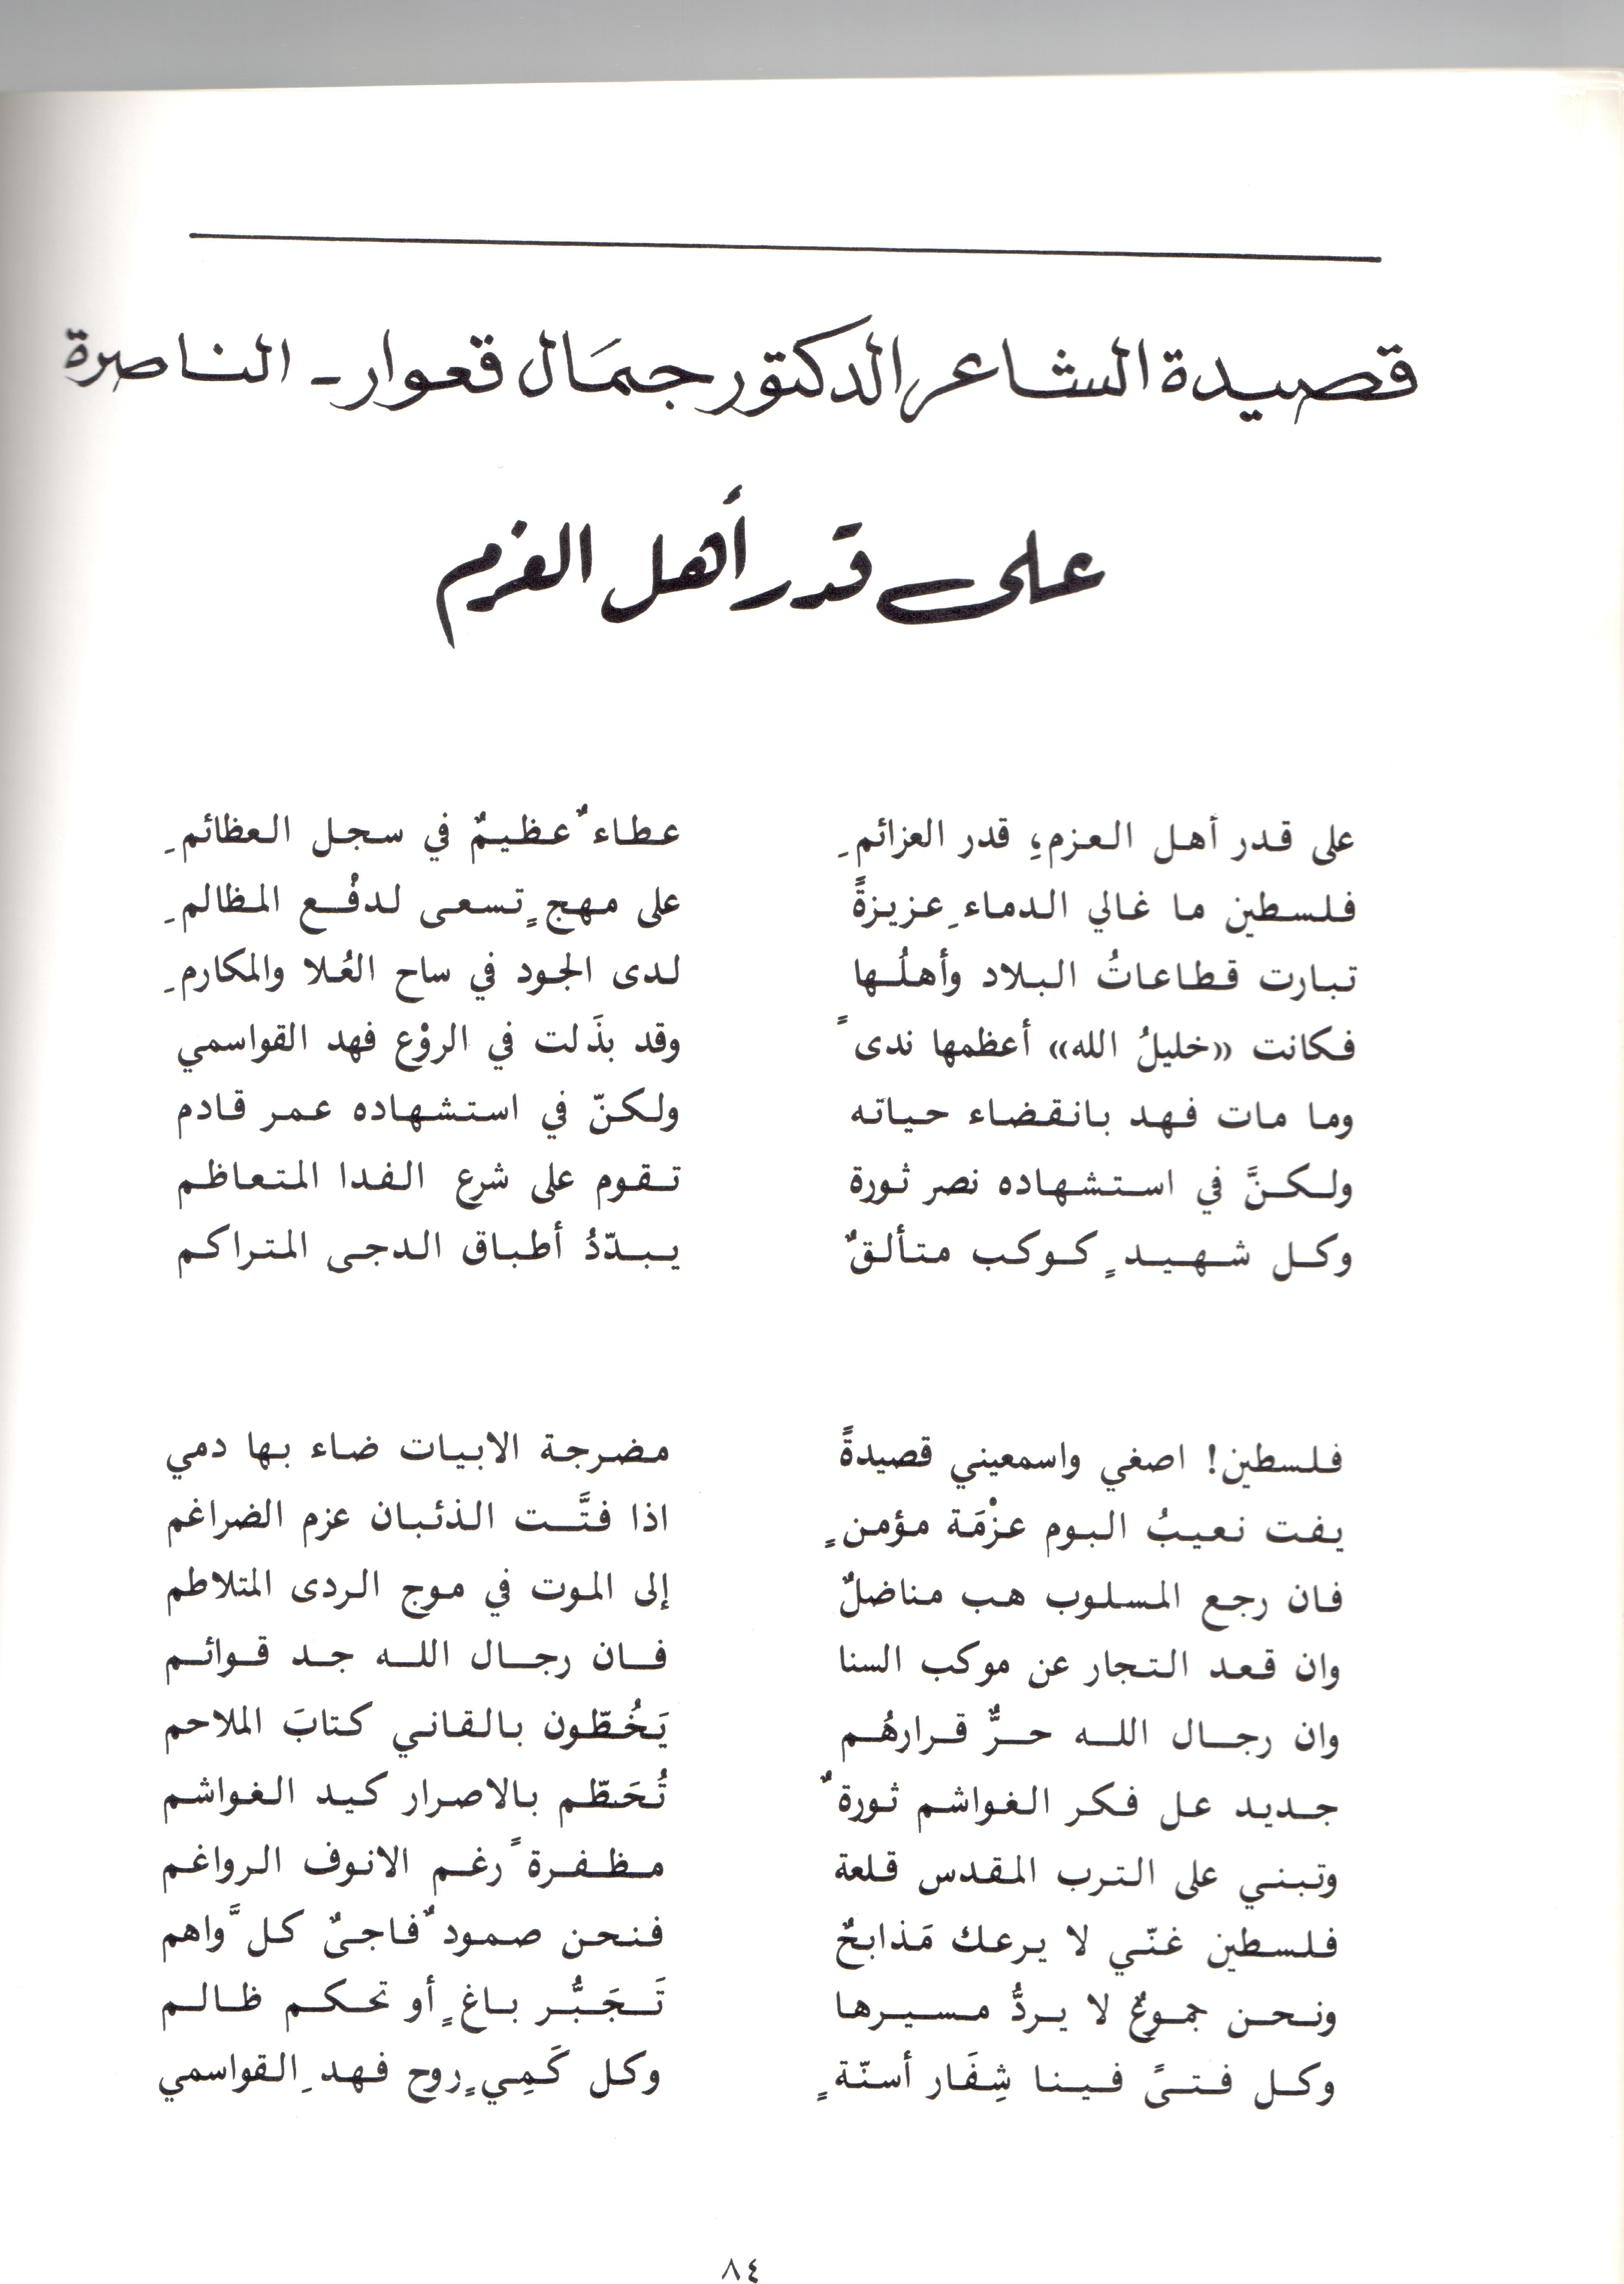 قصيدة الشاعر الدكتور جمَال قعوار - الناصرة
على قدر أهل العزم
على قدر أهل العزمِ؛ قدر العزائمِ عطاءٌ عظيمٌ في سجل العظائمِ
فلسطين ما غالي الدماءِ عزيزةً على مهجٍ تسعى لدفْع المظالمِ
تبارت قطاعاتُ البلاد وأهلُها لدى الجود في ساح العُلا والمكارمِ
فكانت «خليلُ الله» أعظمها ندىً وقد بذَلت في الروْع فهد القواسمي
وما مات فهد بانقضاء حياته ولكنّ في استشهاده عمر قادم
ولكنَّ في استشهاده نصر ثورة تقوم على شرع الفدا المتعاظم
وكل شهيدٍ كوكب متألقٌ يبدّدُ أطباق الدجى المتراكم
فلسطين! اصغي واسمعيني قصيدةً مضرجة الابيات ضاء بها دمي
يفت نعيبُ البوم عزْمَة مؤمنٍ اذا فتَّت الذئبان عزم الضراغم
فان رجع المسلوب هب مناضلٌ إلى الموت في موج الردى المتلاطم
وان قعد التجار عن موكب السنا فان رجال الله جد قوائم
وان رجال الله حرٌّ قرارهُم يَخُطّون بالقاني كتابَ الملاحم
جديد عل فكر الغواشم ثورةٌ تُحَطّم بالاصرار كيد الغواشم
وتبني على الترب المقدس قلعة مظفرةً رغم الانوف الرواغم
فلسطين غنّي لا يرعك مَذابحٌ فنحن صمودٌ فاجىٌ كلَّ واهم
ونحن جموعٌ لا يردُّ مسيرها تَجَبُّر باغٍ أو تحكم ظالم
وكل فتىً فينا شِفَار أسنّةٍ وكل كَمِيٍ روح فهدِ القواسمي
٨٤